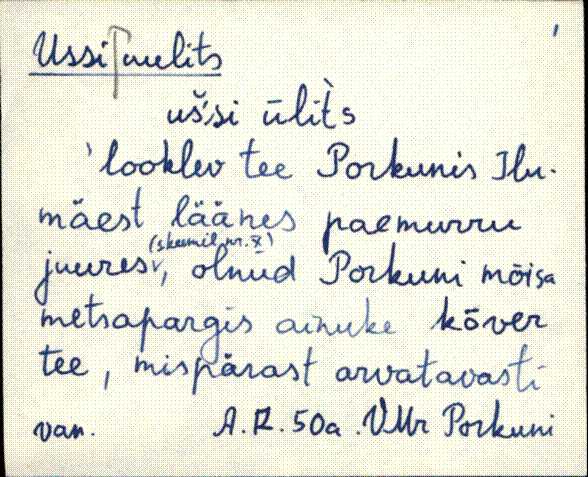 Ussi uulits
uš́si ūlit̀s
'looklev tee Porkunis Ilu-
mäest läänes paemurru
juures (skeemil nr. X), olnud Porkuni mõisa
metsapargis ainuke kõver
tee, mispärast arvatavasti
van. A.R. 50a. VMr Porkuni